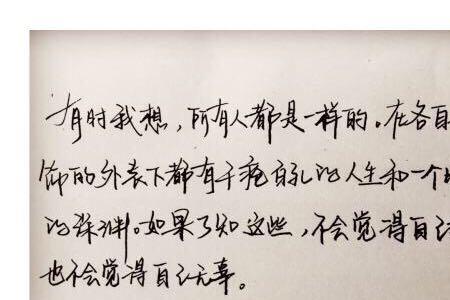 有时我想，所有人都是一样的。在各自
饰的外表下都有千疮百孔的人生和一个
的深渊。如果了知这些，不会觉得自己
也不会觉得自己无辜。